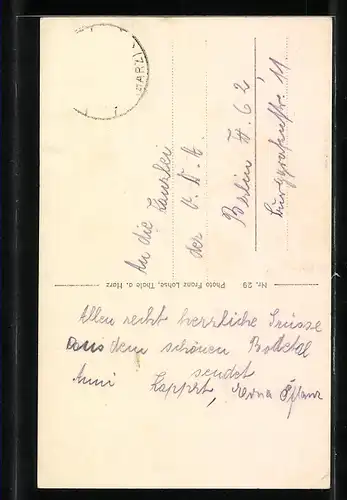 (HARZ)
An die Kanzlei
der V. D. A.
Berlin W. 62
Burggrafenstr. 11
Nr. 29 Photo Franz Lohse, Thale a. Harz
Allen recht herzliche Grüsse
aus dem schönen Bodetal
sendet
Anni Kappert, Erna